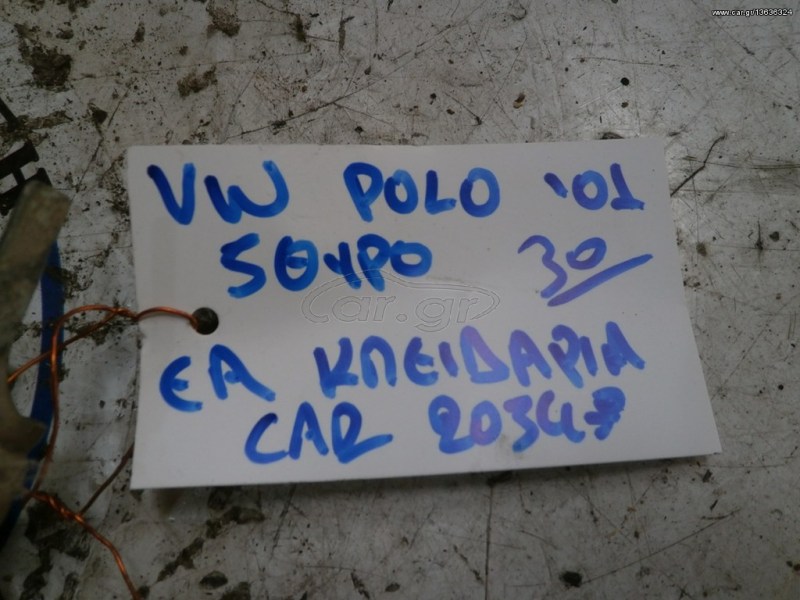 www.car.gr/13636324
VW POLO '01
5ΘΥΡΟ 30
car.gr
ΕΑ ΚΛΕΙΔΑΡΙΑ
CAR 2034